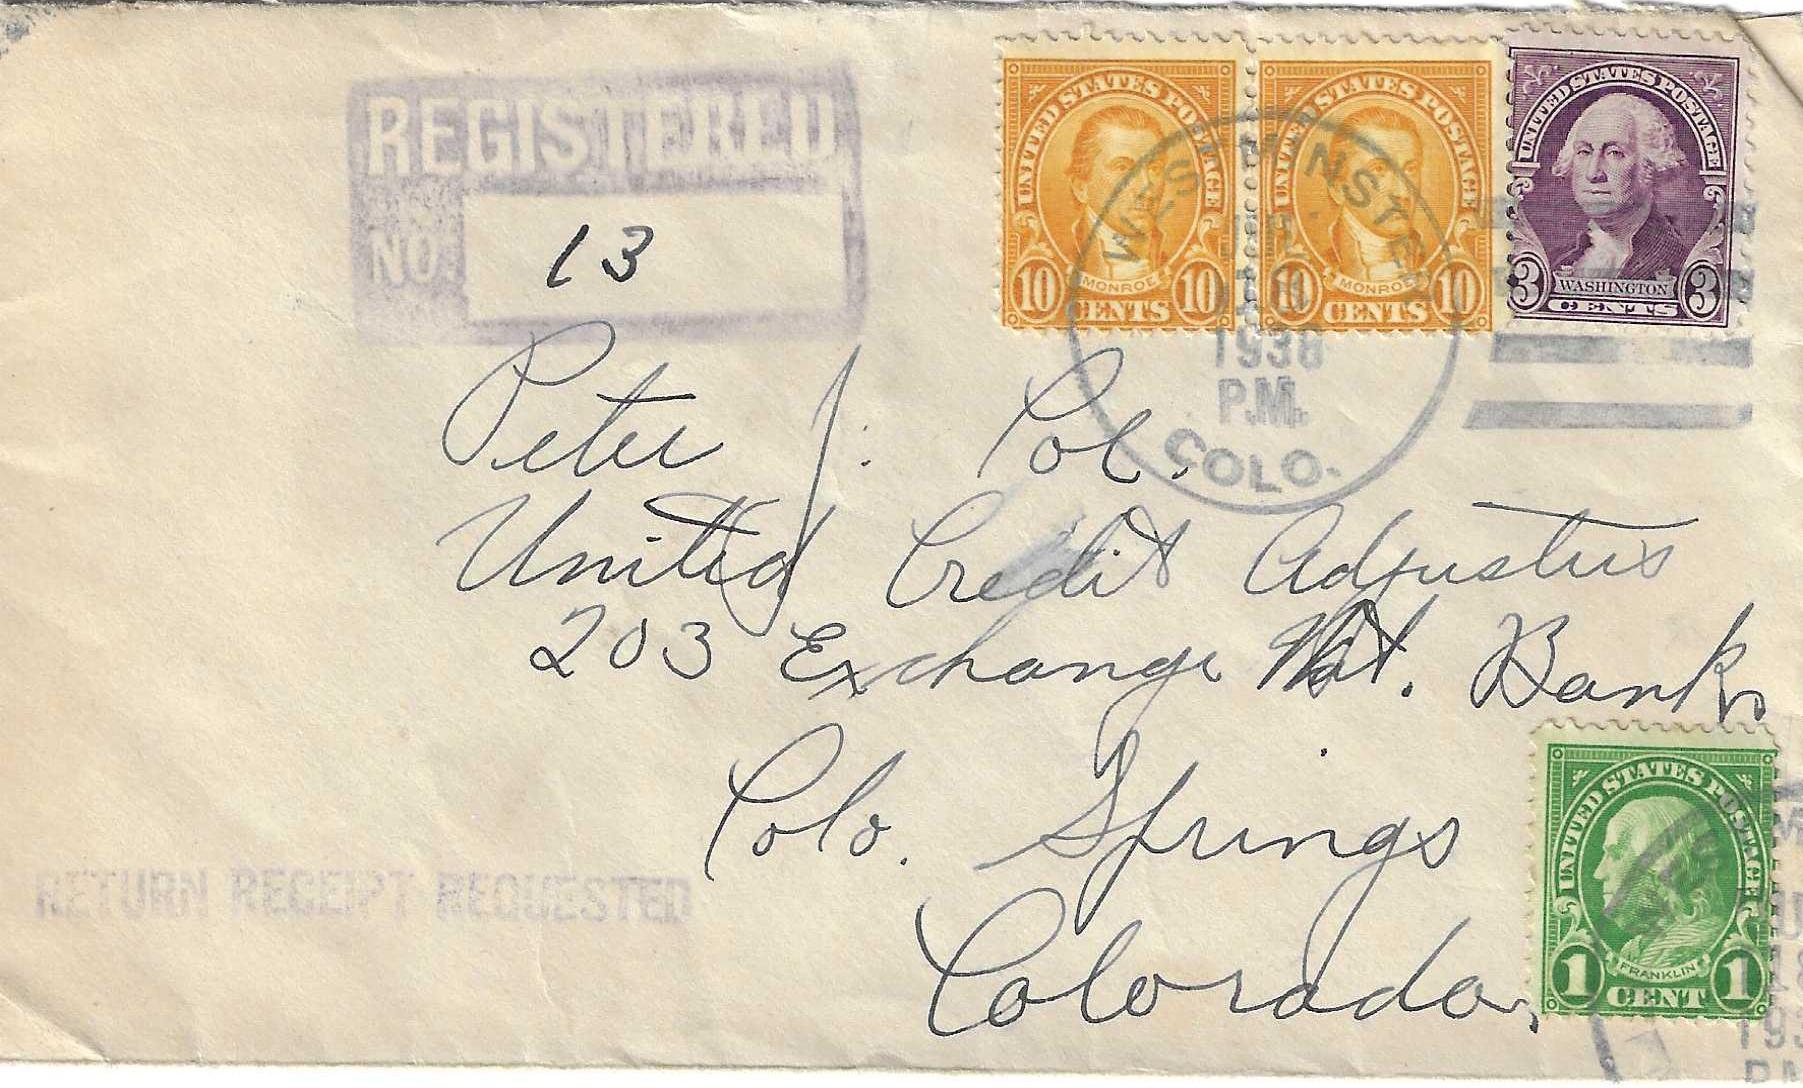 REGISTERED
NO
13
UNITED STATES POSTAGE
MONROE
10 CENTS 10
UNITED STATES POSTAGE
MONROE
10 CENTS 10
UNITED STATES POSTAGE
WASHINGTON
3 CENTS 3
WESTMINSTER
1938
P.M.
COLO.
Peter J. Col.
United Credit Adjusters
203 Exchange Nat. Bank
Colo. Springs
Colorado
RETURN RECEIPT REQUESTED
UNITED STATES POSTAGE
FRANKLIN
1 CENT 1
18